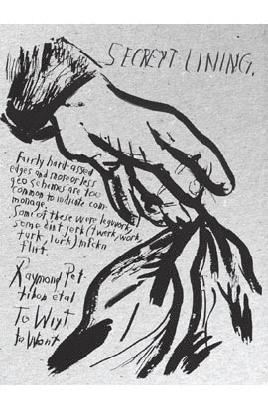 SECREYT LINING.
Fairly hard assed
edges and more or less
geo schemes are too
common to indicate com-
monage.
Some of these were legwork,
some aint jerk (twerk, work,
flirt.
Raymond Pet-
tibon etal
To Wiyt
to Want